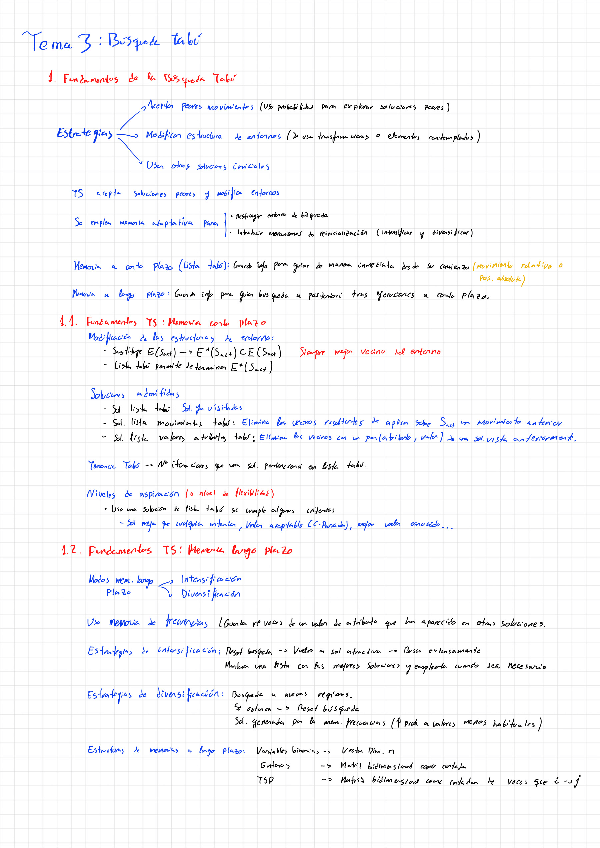 Tema 3: Búsqueda tabú
1. Fundamentos de la Búsqueda Tabú
Aceptar peores movimientos (Usa probabilidad para explorar soluciones peores)
Estrategias Modifican estructura de entornos (Se usa transformaciones o elementos contemplados)
Usan otras soluciones iniciales
TS acepta soluciones peores y modifica entornos
Se emplea memoria adaptativa para · Restringir entorno de búsqueda
· Introducir mecanismos de reinicialización (intensificar y diversificar)
Memoria a corto plazo (lista tabú): Guarda info para guiar de manera inmediata desde su comienzo (movimiento relativo o
pos. absoluta)
Memoria a largo plazo: Guarda info para guiar búsqueda a posteriori tras ejecuciones a corto plazo.
1.1. Fundamentos TS: Memoria corto plazo
Modificación de las estructuras de entorno:
· Sustituye E(Sact) --> E*(Sact) ⊂ E(Sact) Siempre mejor vecino del entorno
· Lista tabú permite determinar E*(Sact)
Soluciones admitidas
· Sol lista tabú: Sol. ya visitadas
· Sol. lista movimientos tabú: Elimina los vecinos resultantes de aplicar sobre Sact un movimiento anterior
· Sol. lista valores atributos tabú: Elimina los vecinos con un par (atributo, valor) de una sol. vista anteriormente.
Tenencia Tabú -- Nº iteraciones que una sol. permanece en lista tabú.
Niveles de aspiración (o nivel de flexibilidad)
· Usa una solución de lista tabú si cumple algunos criterios
- Sol mejor que cualquiera anterior, Valor aceptable , mejor valor conocido...
1.2. Fundamentos TS: Memoria largo plazo
Modos mem. largo Intensificación
plazo Diversificación
Uso memoria de frecuencias (Guarda nº veces de un valor de atributo que ha aparecido en otras soluciones.
Estrategias de intensificación: Reset búsqueda --> Vuelve a sol atractiva --> Busca extensamente
Mantiene una lista con las mejores soluciones y emplearla cuando sea necesario
Estrategias de diversificación: Búsqueda a nuevas regiones.
Se estanca --> Reset búsqueda
Sol. generada por la mem. frecuencias (↑ prob a valores menos habituales)
Estructuras de memorias a largo plazo: Variables binarias --> Vector Dim. n
Enteros --> Matriz bidimensional como contador
TSP --> Matriz bidimensional como contador de veces que i -> j